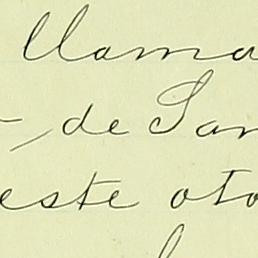 llama
- , de San
este oto